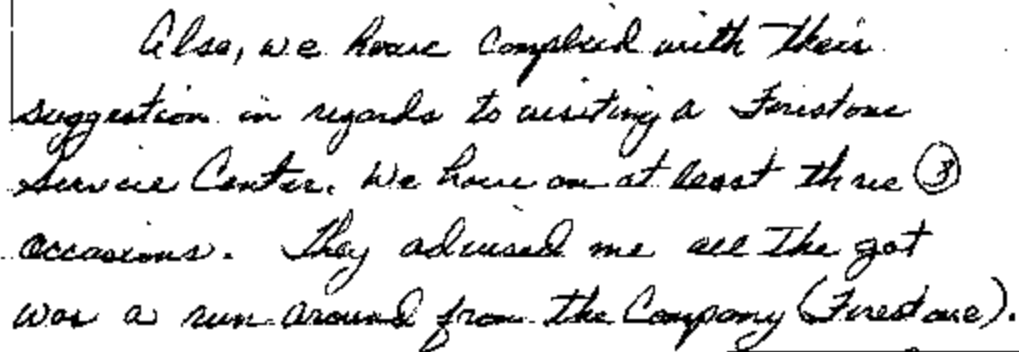 Also, we have complied with their
suggestion in regards to visiting a Firestone
Service Center. We have on at least three (3)
occasions. They advised me all the got
was a run around from the Company (Firestone).